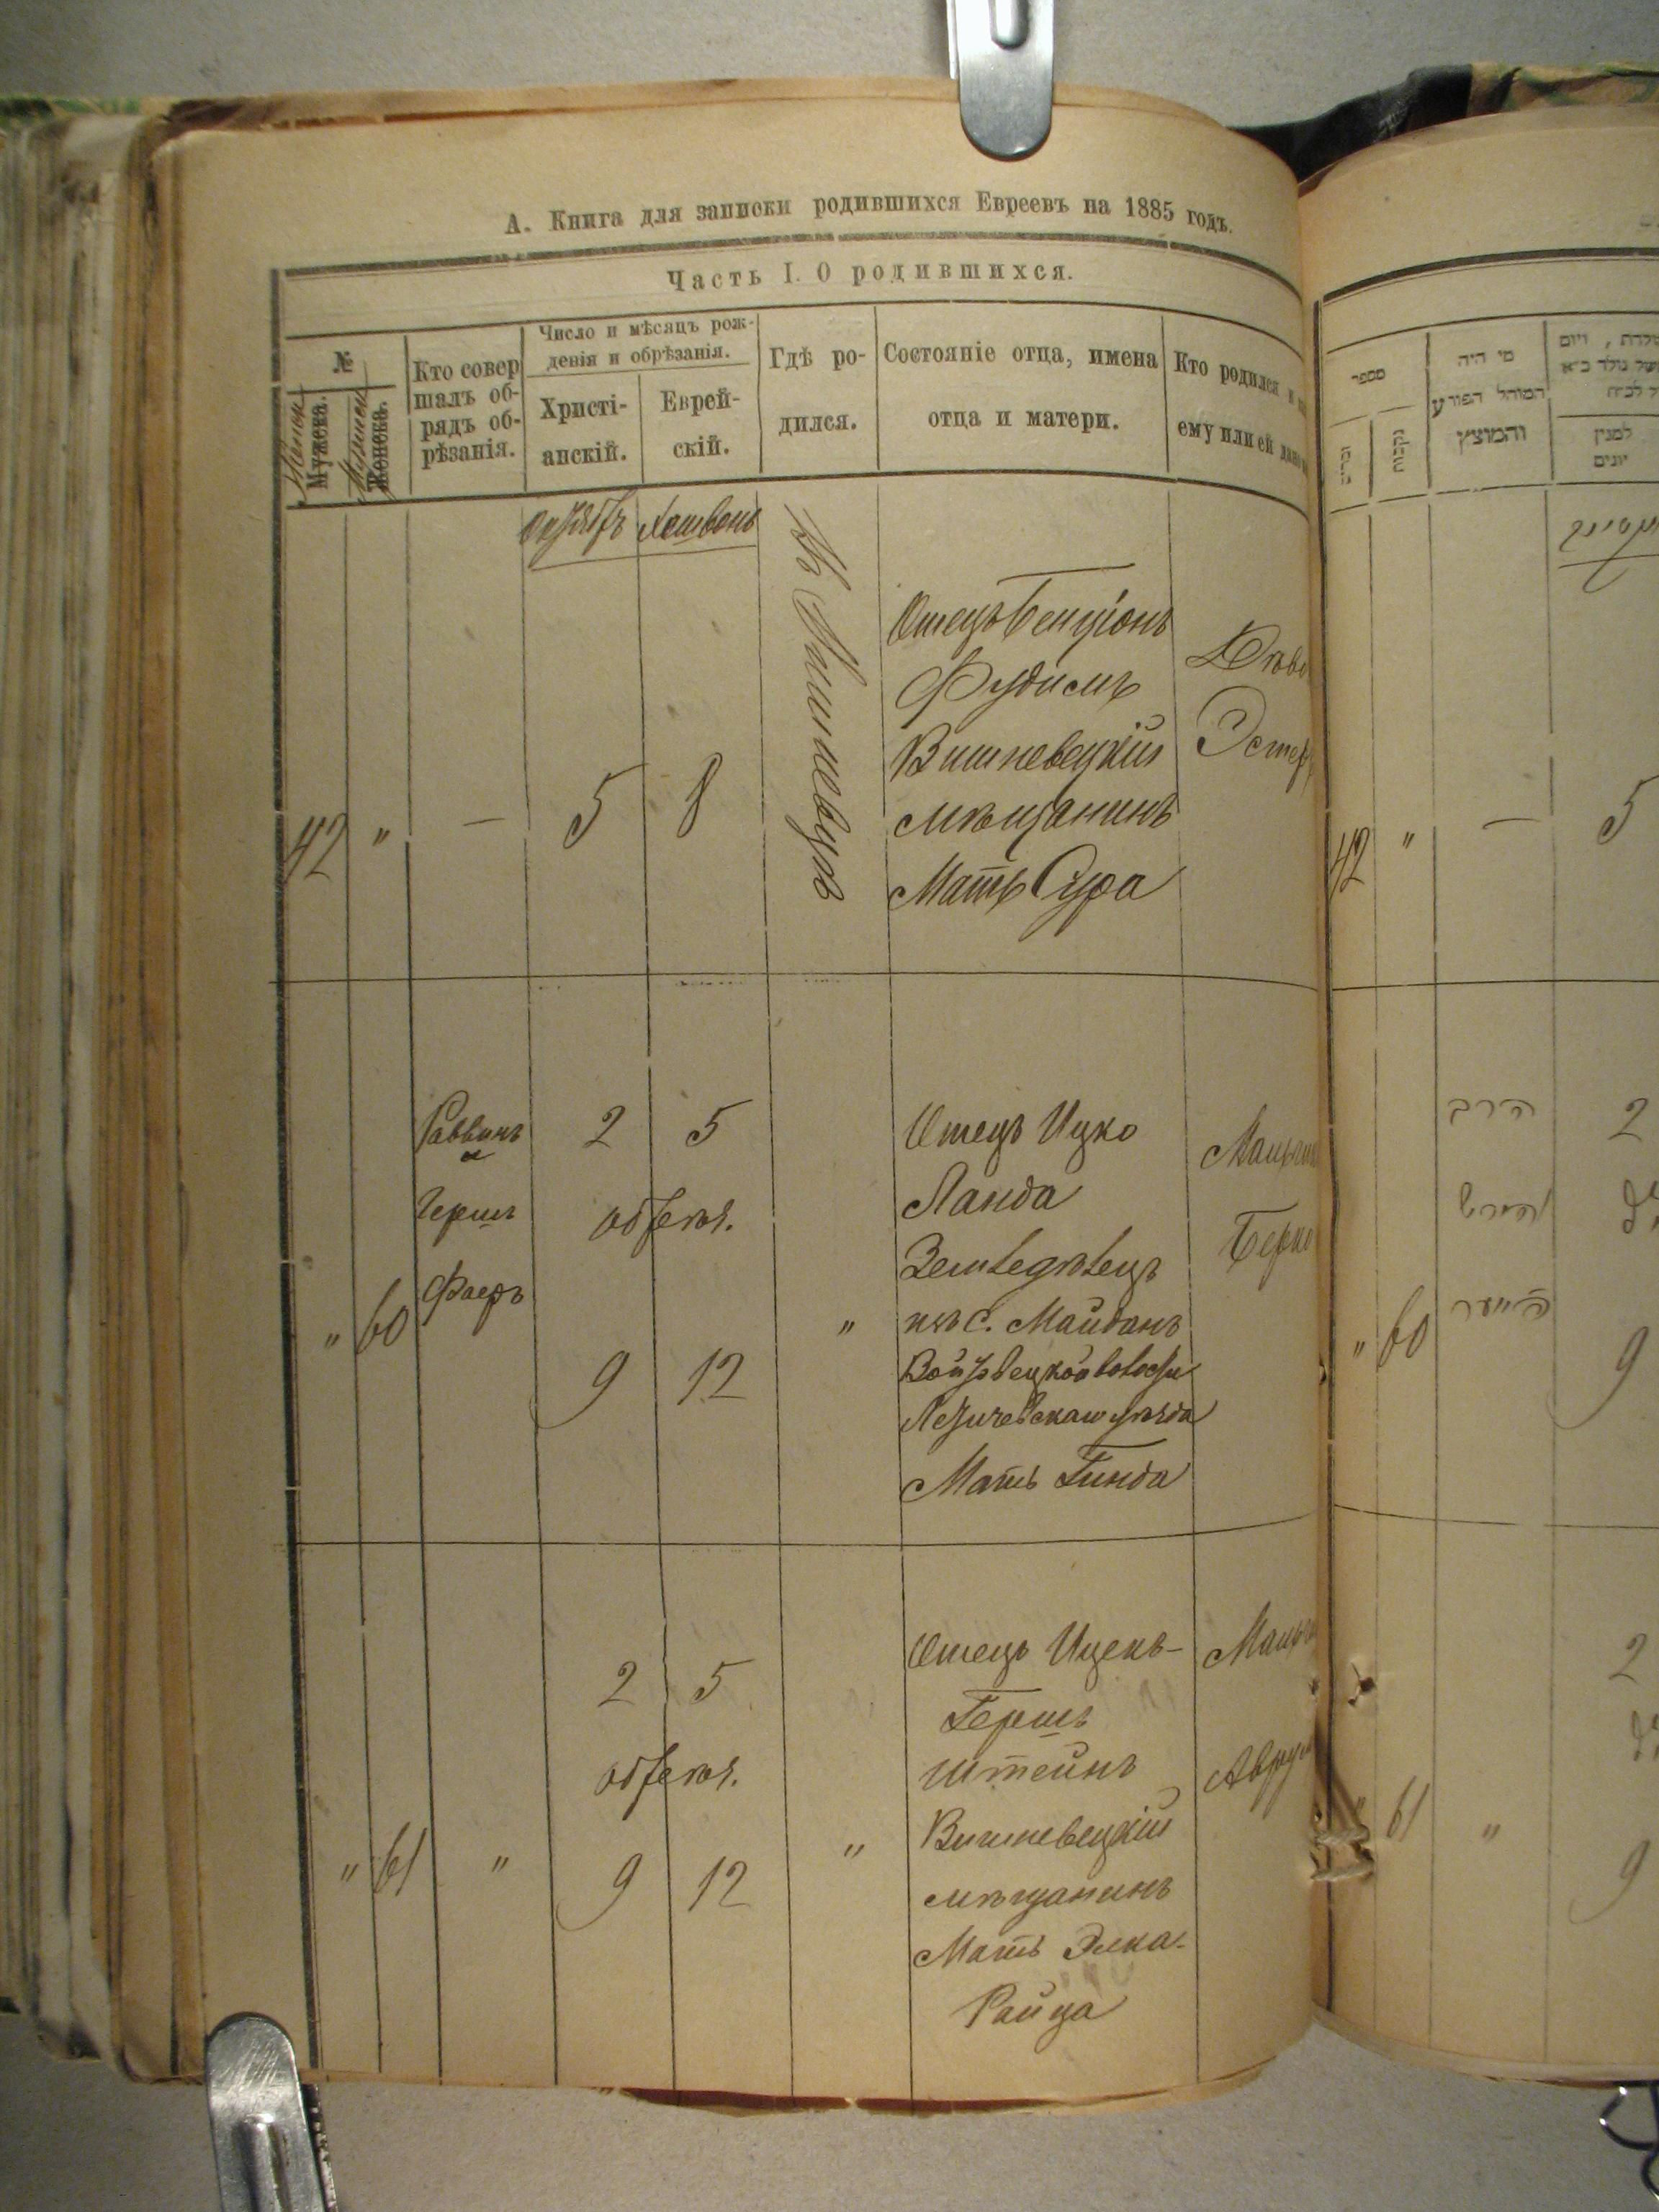 А. Книга для записки родившихся Евреевъ на 1885 годъ.
Часть I. О родившихся.
№
Мужеска.
Женска.
Кто совер
шалъ об-
рядъ об-
рѣзанія.
Число и мѣсяцъ рож-
денія и обрѣзанія.
Христі-
анскій.
Еврей-
скій.
Гдѣ ро-
дился.
Состояніе отца, имена
отца и матери.
Кто родился и
ему или ей
Октябрь Хешвонъ
42 " — 5 8
Въ Вишневцѣ
Отецъ Бенціонъ
Фудимъ
Вишневецкій
мѣщанинъ
Мать Сура
Эстер
" 60
Раввинъ
и
Гершъ
Фаеръ
2 5
обрѣз.
9 12
"
Отецъ Ицко
Ланда
Земледѣлецъ
изъ с. Майданъ
волости
Летичевскаго уѣзда
Мать Гинда
Берко
" 61 "
2 5
обрѣз.
9 12
"
Отецъ Ицекъ-
Гершъ
Штейнъ
Вишневецкій
мѣщанинъ
Мать Элка-
Райца
מספר
זכרים
נקבות
מי היה
המוהל הפורע
והמוצץ
למנין
יונים
42 " — 5
" 60
הרב
2
9
" 61 "
2
9